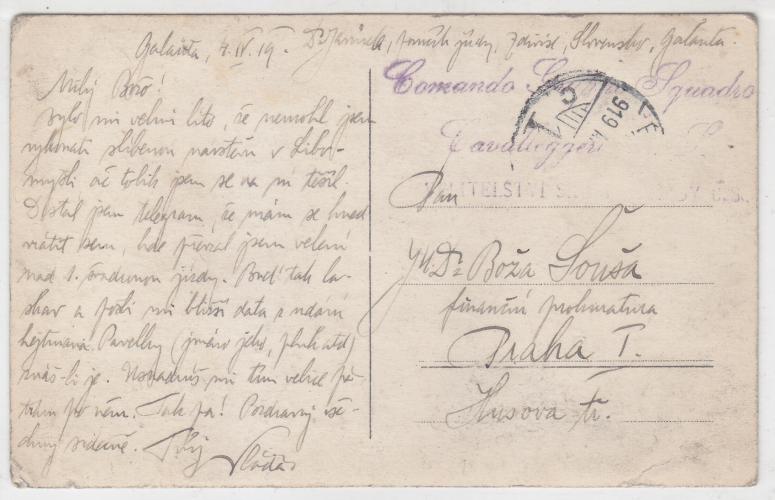 Galanta, 4.IV.19. Dr. , jízdy, Zdiviz, Slovensko, Galanta.
Milý Božo!
bylo mi velmi líto, že nemohl jsem
vykonati slíbenou návštěvu v Libo-
myšli ač tolik jsem se na ni těšil.
Dostal jsem telegram, že mám se hned
vrátit sem, kde převzal jsem velení
nad 1. švadronou jízdy. Buď tak la-
skav a pošli mi bližší data a udání
hejtmana (jméno jeho, pluk atd)
znáš-li je. Usnadníš mi tím velice pá-
trání po něm. Tak pá! Pozdravuj vše-
chny srdečně. Tvůj Vláďa
Comando Squadro
Cavalleggeri
VELITELSTVÍ
919
Pan
JUDr Boža Souša
finanční prokuratura
Praha I.
Husova tř.